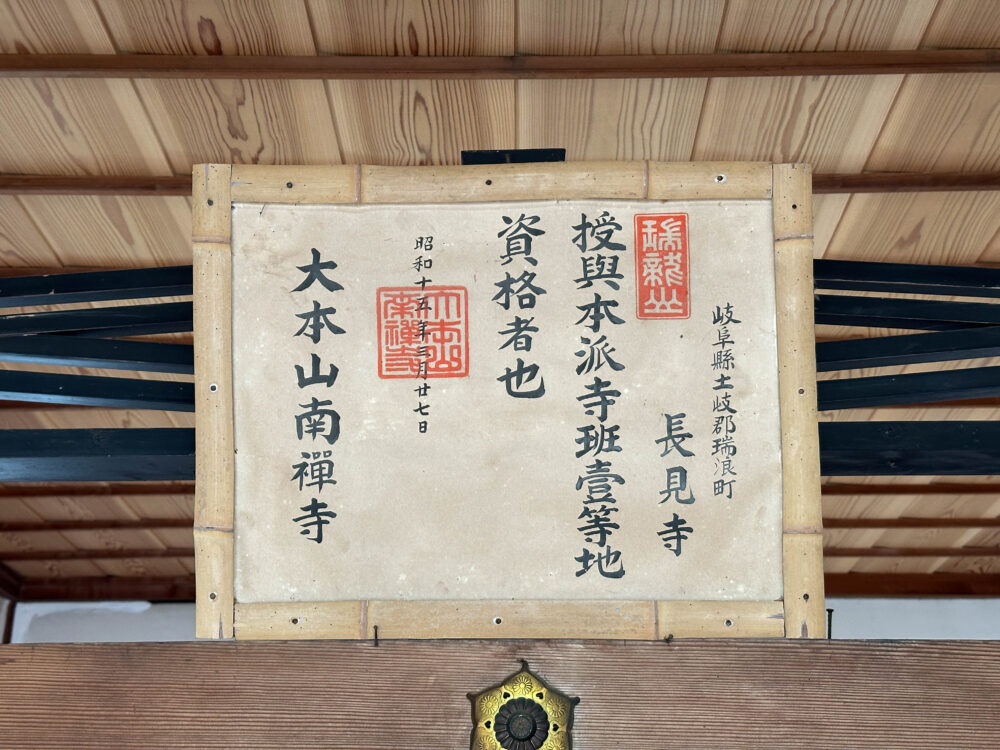 岐阜縣土岐郡瑞浪町
長見寺
瑞龍山
授與本派寺班壹等地
資格者也
昭和十五年三月廿七日
大本山南禪寺
大本山南禪寺